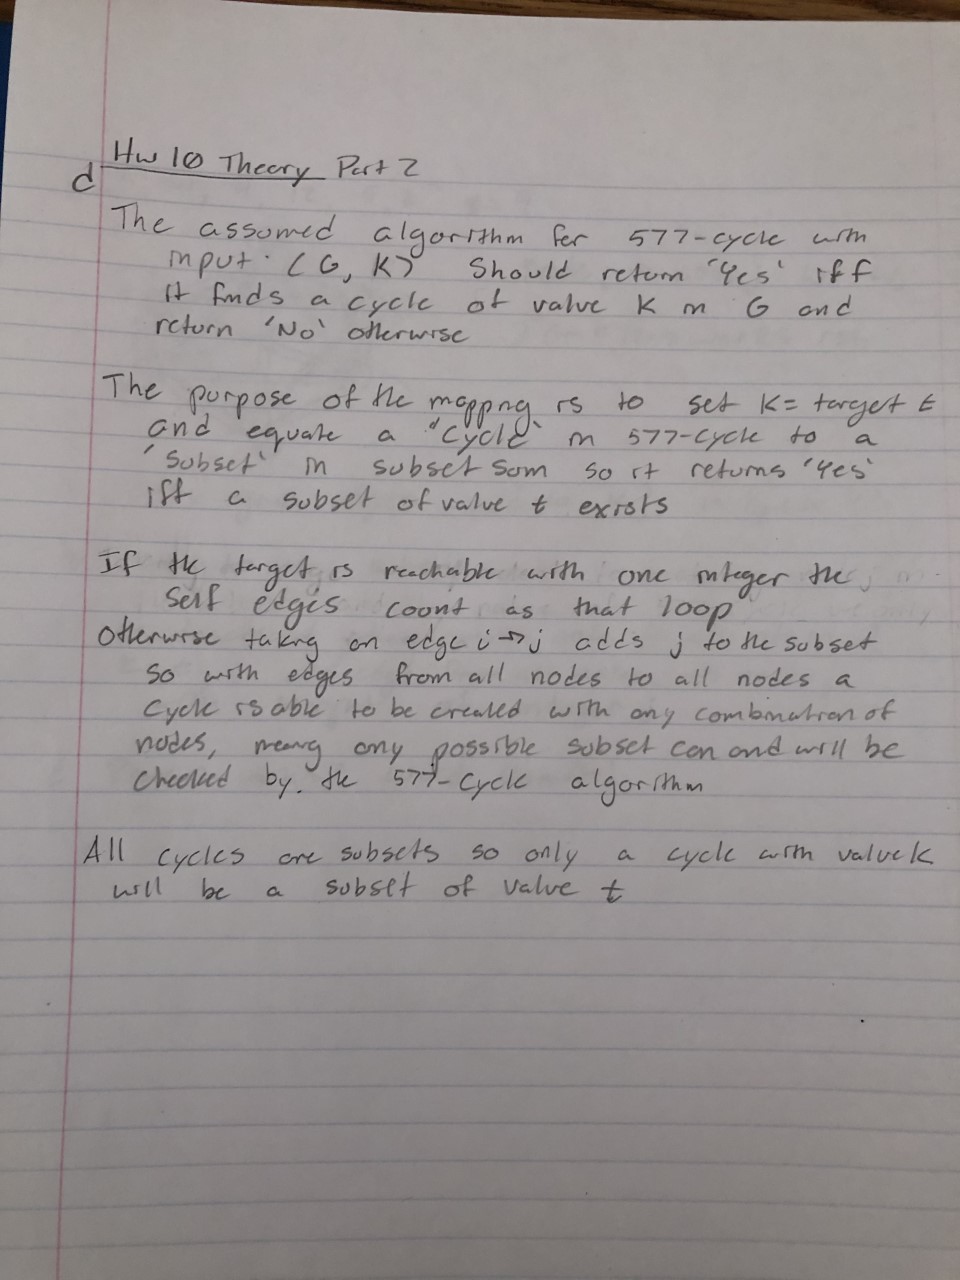 Hw 10 Theory Part 2
d
The assumed algorithm for 577-cycle with
input: ⟨G, K⟩ Should return 'Yes' iff
it finds a cycle of value K in G and
return 'No' otherwise
The purpose of the mapping is to set K = target t
and equate a "Cycle" in 577-cycle to a
'Subset' in subset sum so it returns 'Yes'
iff a subset of value t exists
If the target is reachable with one integer the
self edges count as that loop
Otherwise taking an edge i→j adds j to the subset
so with edges from all nodes to all nodes a
cycle is able to be created with any combination of
nodes, meaning any possible subset can and will be
checked by the 577-cycle algorithm
All cycles are subsets so only a cycle with value k
will be a subset of value t